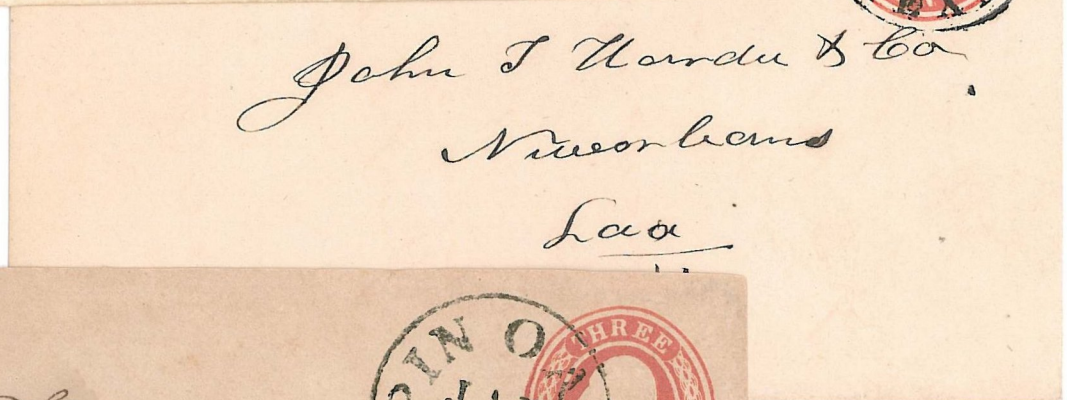 EX
John T Hardee & Co
Neworleans
Laa
PIN O
THREE
JA